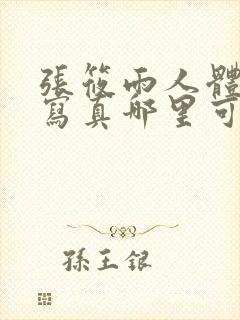 張筱雨人體
寫真哪里可
孫王銀